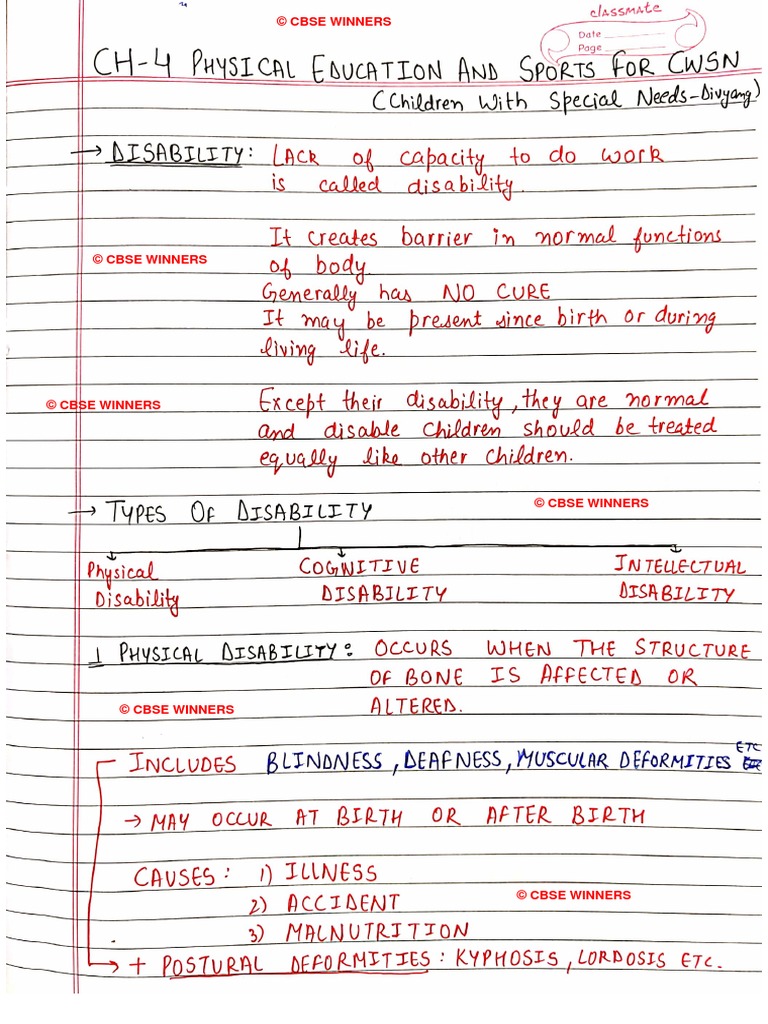 © CBSE WINNERS
classmate
Date
Page
CH-4 PHYSICAL EDUCATION AND SPORTS FOR CWSN
(Children With Special Needs-Divyang)
→ DISABILITY: LACK of capacity to do work
is called disability.
It creates barrier in normal functions
© CBSE WINNERS
of body.
Generally has NO CURE
It may be present since birth or during
living life.
© CBSE WINNERS
Except their disability, they are normal
and disable children should be treated
equally like other children.
© CBSE WINNERS
→ TYPES OF DISABILITY
Physical Disability
COGNITIVE DISABILITY
INTELLECTUAL DISABILITY
1 PHYSICAL DISABILITY: OCCURS WHEN THE STRUCTURE
OF BONE IS AFFECTED OR
© CBSE WINNERS
ALTERED.
INCLUDES BLINDNESS, DEAFNESS, MUSCULAR DEFORMITIES ETC
→ MAY OCCUR AT BIRTH OR AFTER BIRTH
CAUSES: 1) ILLNESS
© CBSE WINNERS
2) ACCIDENT
3) MALNUTRITION
→ + POSTURAL DEFORMITIES: KYPHOSIS, LORDOSIS ETC.